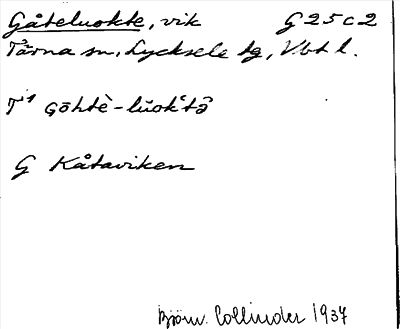 Gåteluokte, vik G 25 c 2
Tärna sn, Lycksele tg, Vbt l.
T¹ gōhtè-lŭokᵗtə̂
G Kåtaviken
Björn Collinder 1937